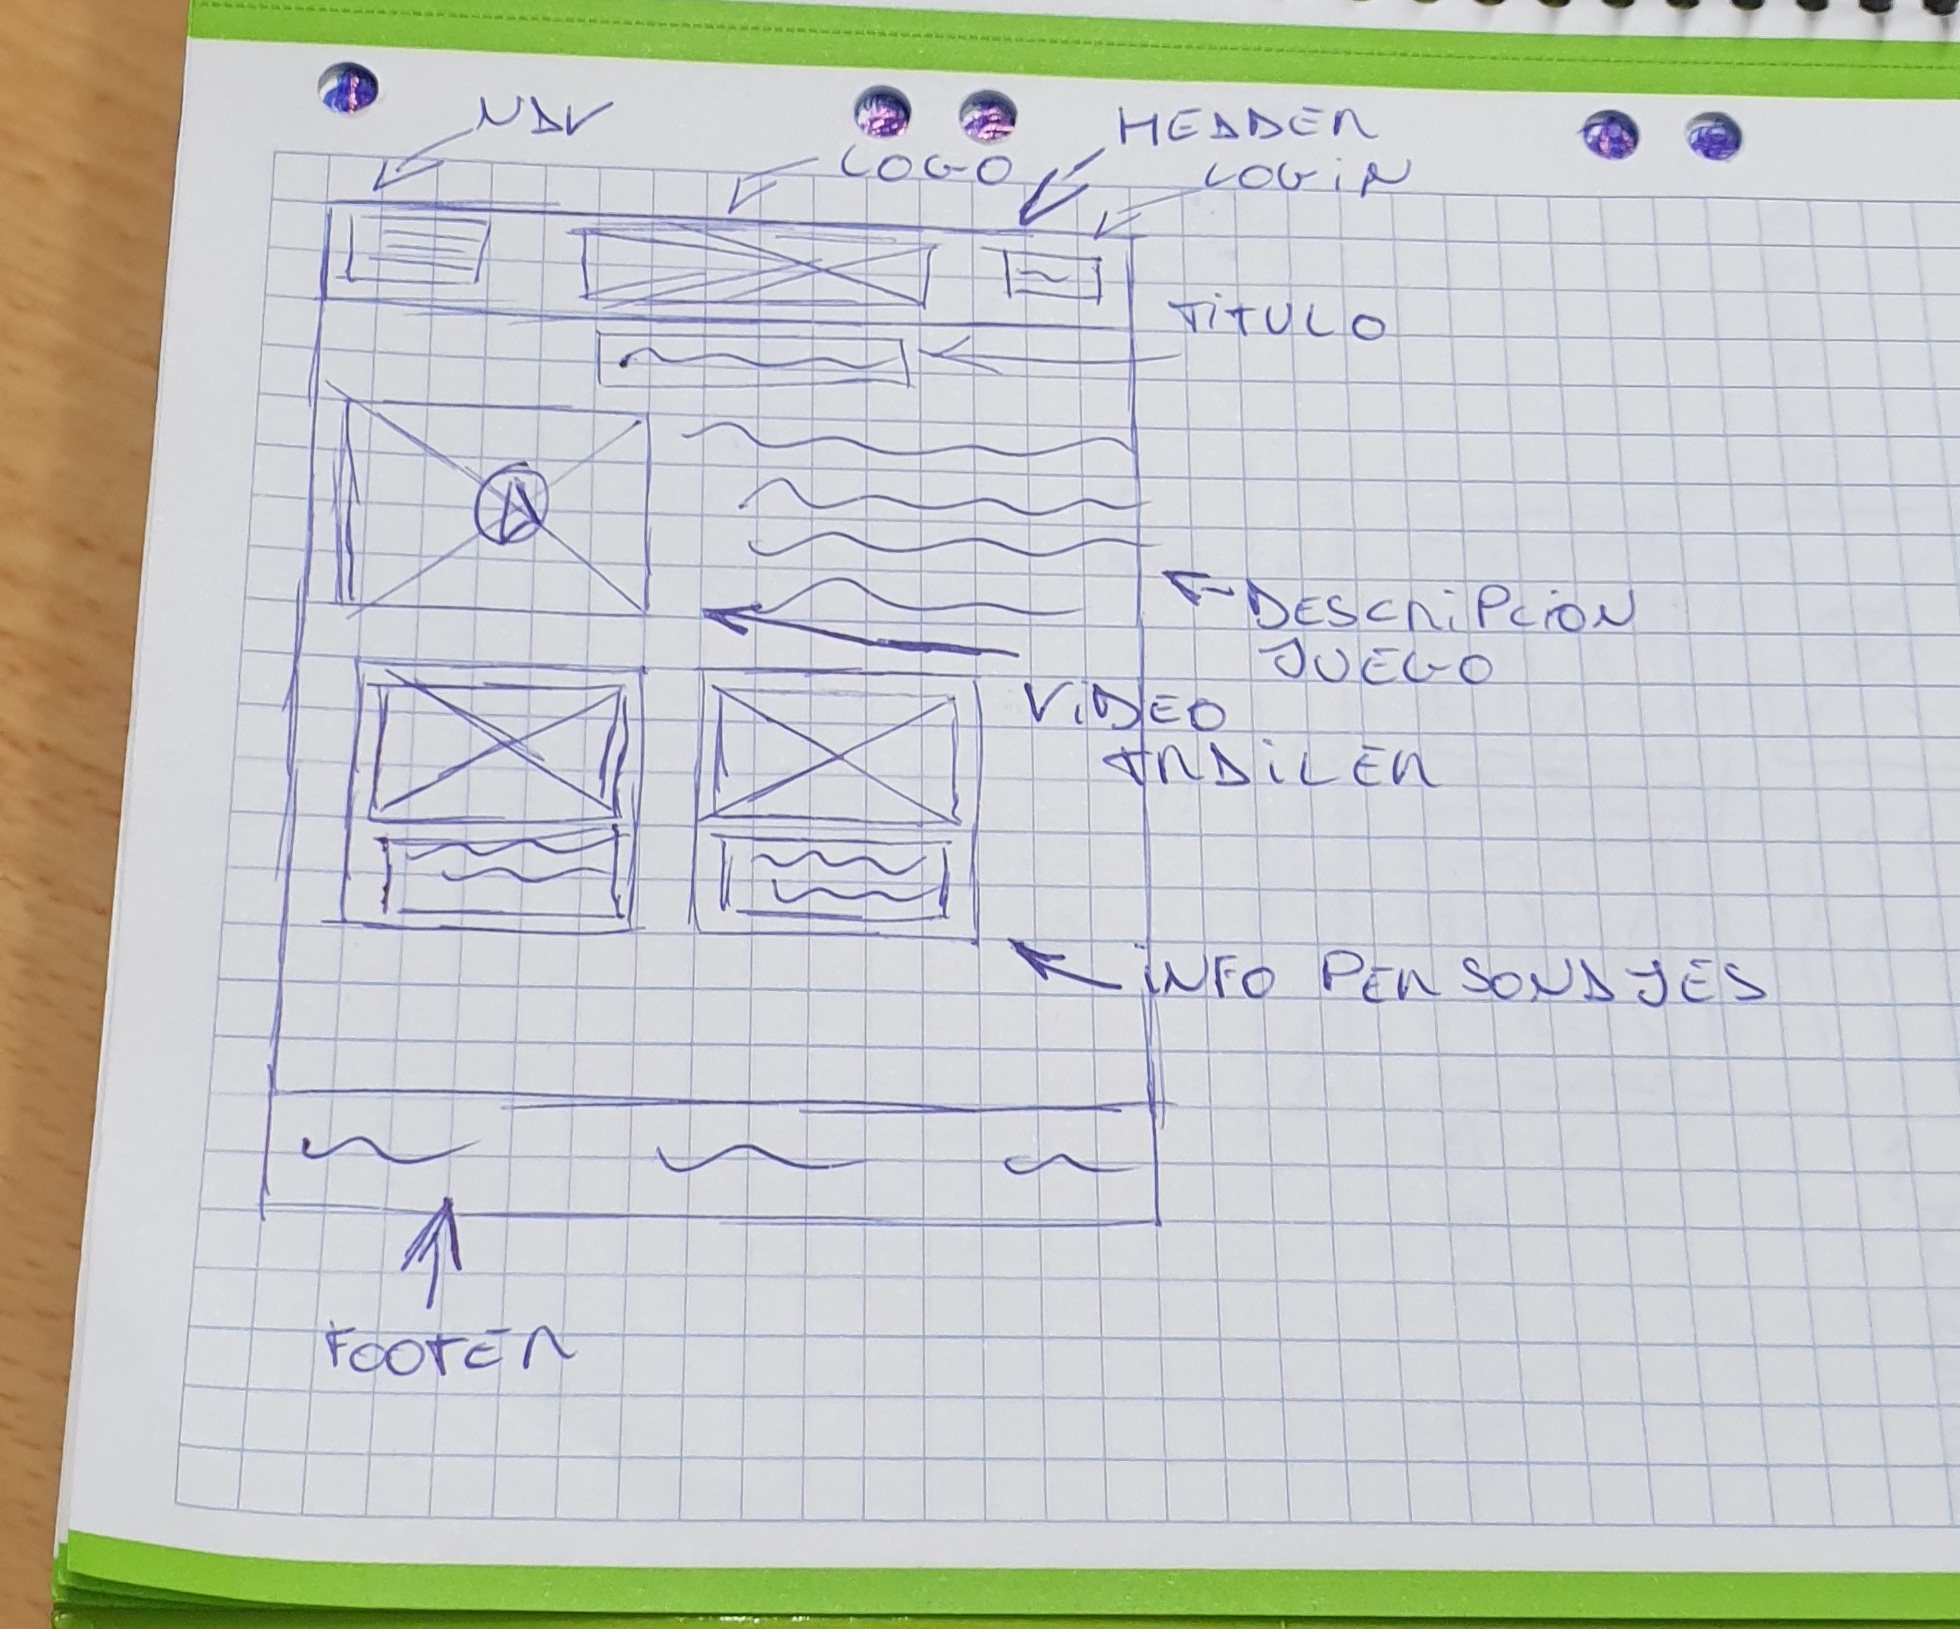 NAV
HEADER
LOGO
LOGIN
TITULO
DESCRIPCION
JUEGO
VIDEO
TRAILER
INFO PERSONAJES
FOOTER